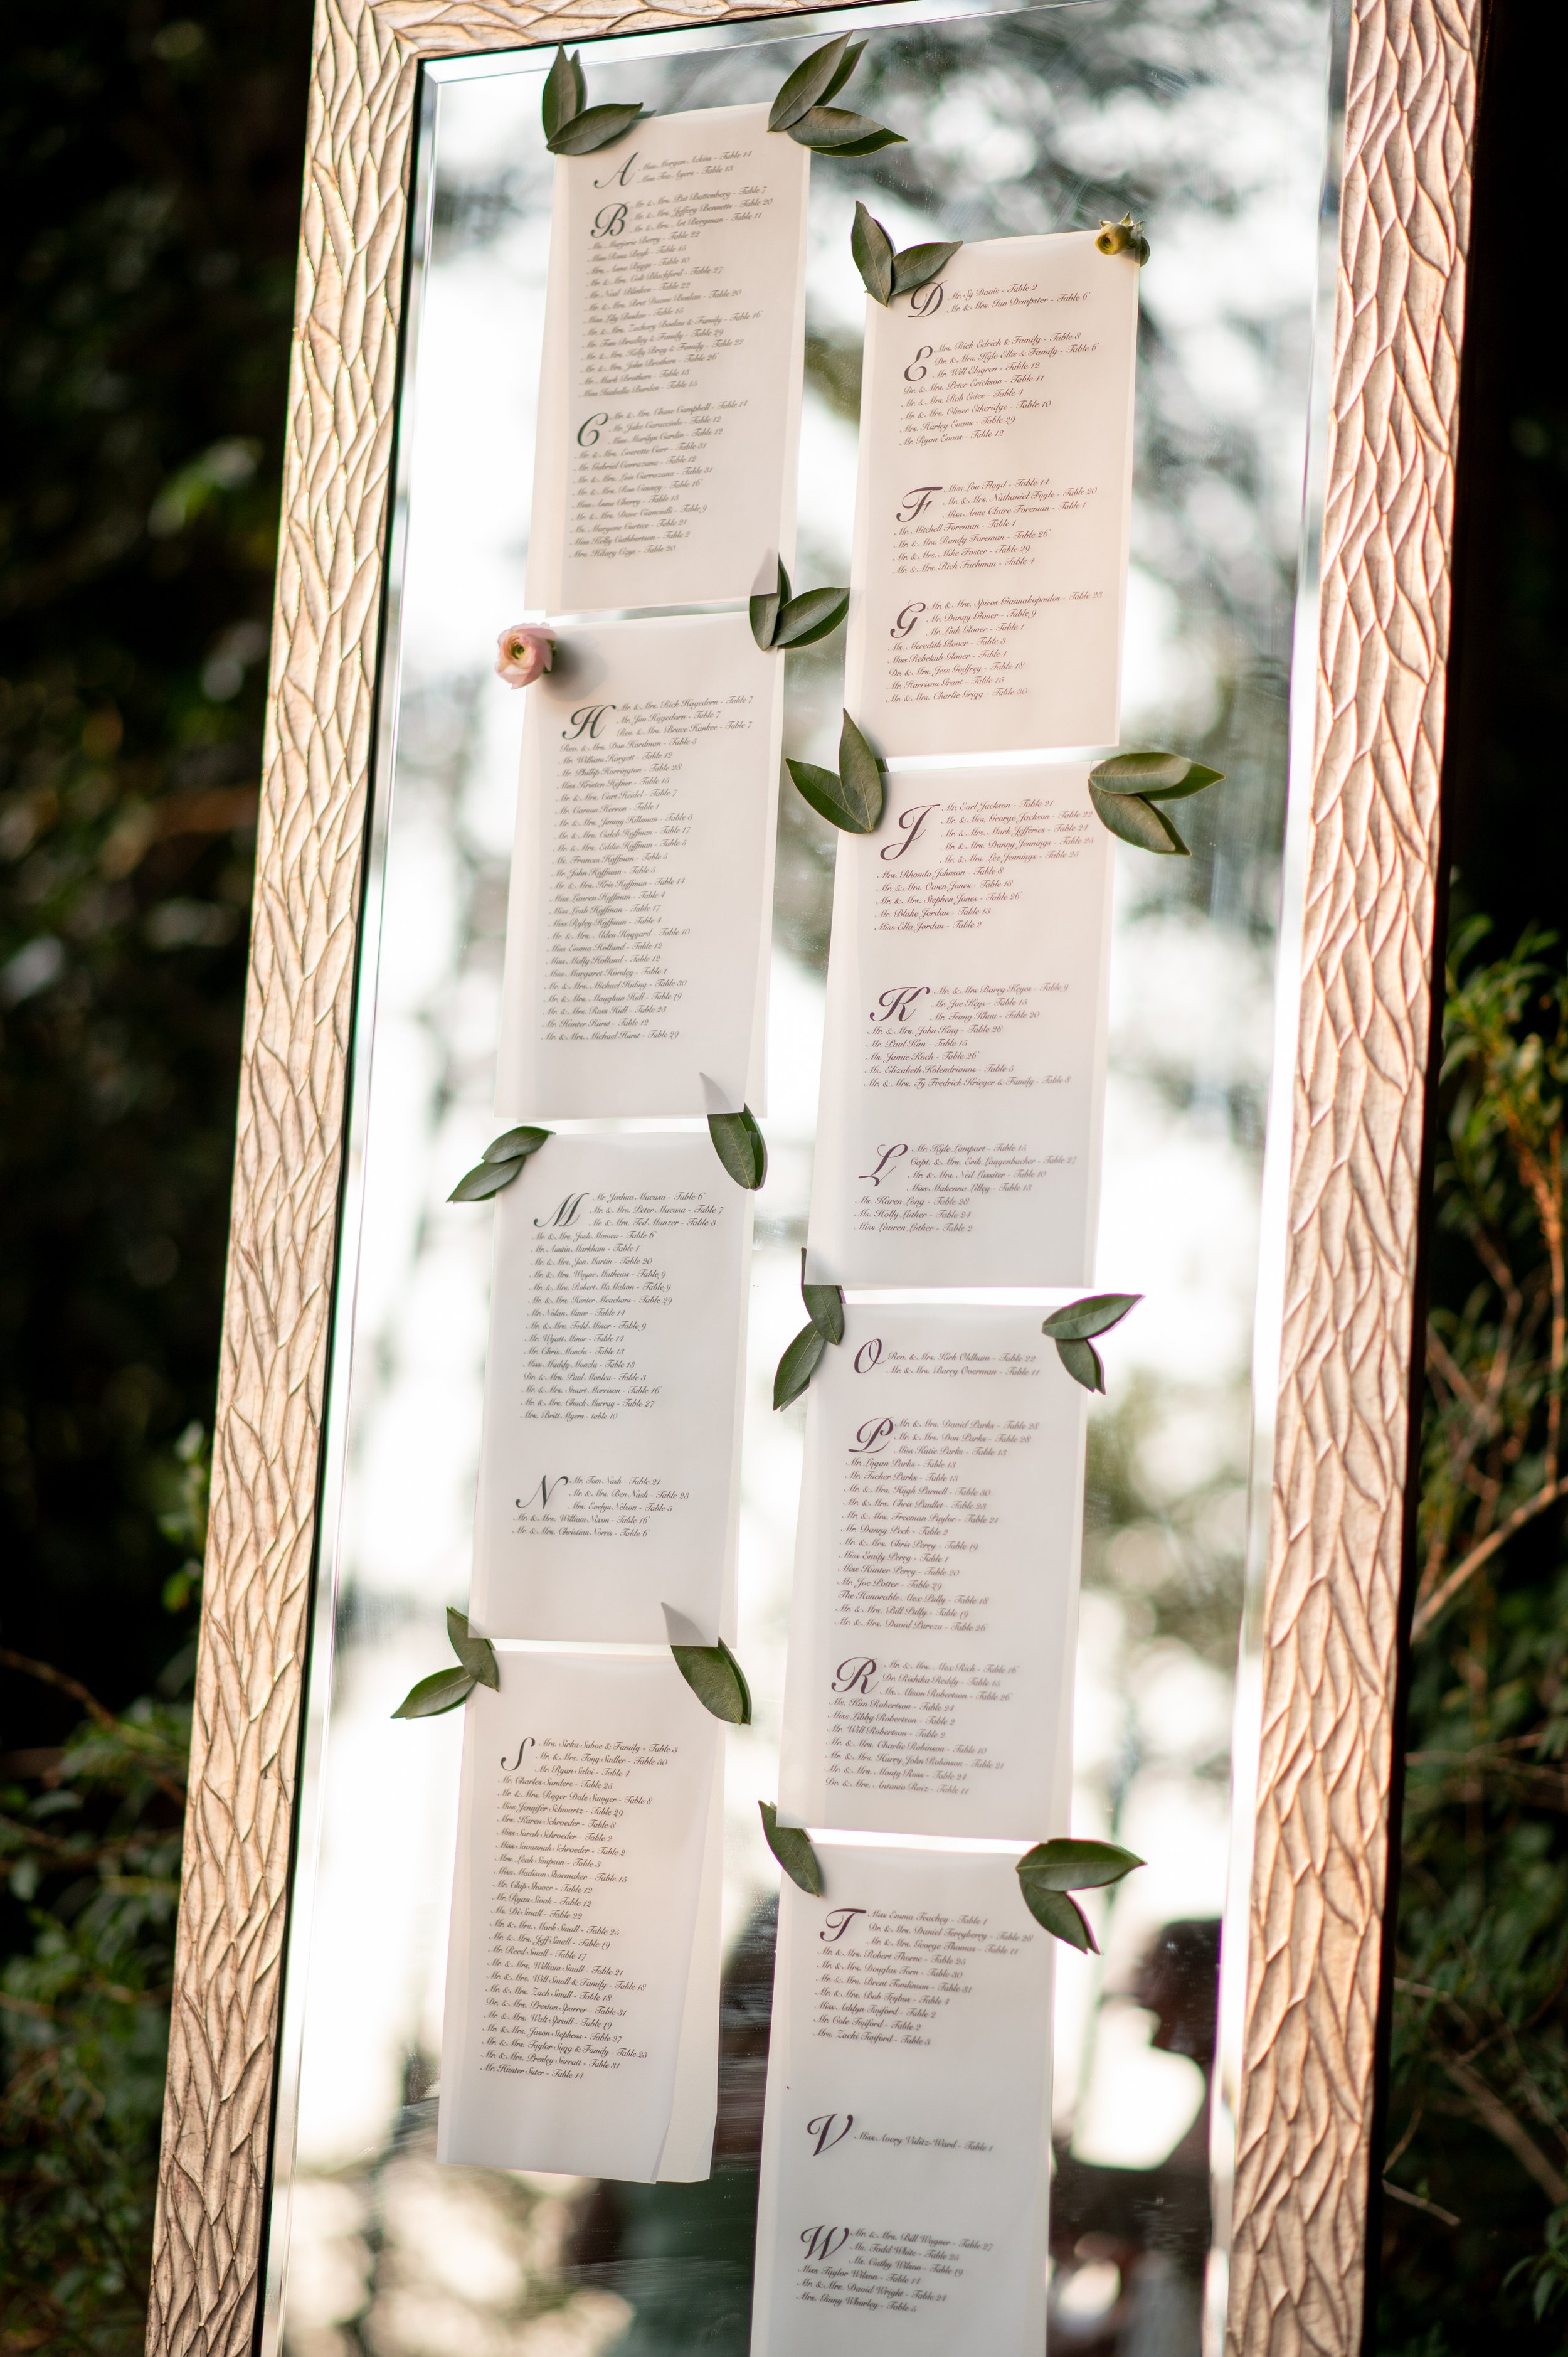 A
Miss Morgan Askins - Table 14
Miss Tea Ayers - Table 13
B
Mr. & Mrs. Pat Battenberg - Table 7
Mr. & Mrs. Jeffery Bennetts - Table 20
Mr. & Mrs. Ari Bergman - Table 11
Ms. Marjorie Berry - Table 22
Miss Rosa Bogh - Table 15
Mrs. Anna Boggs - Table 10
Mr. & Mrs. Colt Blackford - Table 27
Mr. Neil Blinken - Table 22
Mr. & Mrs. Bret Duane Boslau - Table 20
Miss Lily Boslau - Table 15
Mr. & Mrs. Zachary Boslau & Family - Table 16
Mr. Tom Bradley & Family - Table 29
Mr. & Mrs. Kelly Bray & Family - Table 22
Mr. & Mrs. John Brothers - Table 26
Mr. Mark Brothers - Table 13
Miss Isabella Burden - Table 15
C
Mr. & Mrs. Chase Campbell - Table 14
Mr. Jake Caracciolo - Table 12
Miss Marilyn Cardin - Table 12
Mr. & Mrs. Everette Carr - Table 31
Mr. Gabriel Carrazana - Table 12
Mr. & Mrs. Luis Carrazana - Table 31
Mr. & Mrs. Ron Cassey - Table 16
Miss Anna Cherry - Table 15
Mr. & Mrs. Dave Cianciulli - Table 9
Ms. Maryann Cortez - Table 21
Miss Kelly Cuthbertson - Table 2
Mrs. Hilary Coye - Table 20
D
Mr. Sy Davis - Table 2
Mr. & Mrs. Ian Dempster - Table 6
E
Mrs. Rick Edrich & Family - Table 8
Dr. & Mrs. Kyle Ellis & Family - Table 6
Mr. Will Elmgren - Table 12
Dr. & Mrs. Peter Erickson - Table 11
Mr. & Mrs. Rob Estes - Table 4
Mr. & Mrs. Oliver Etheridge - Table 10
Mrs. Harley Evans - Table 29
Mr. Ryan Evans - Table 12
F
Miss Lou Floyd - Table 14
Mr. & Mrs. Nathaniel Fogle - Table 20
Miss Anne Claire Foreman - Table 1
Mr. Mitchell Foreman - Table 1
Mr. & Mrs. Randy Foreman - Table 26
Mr. & Mrs. Mike Foster - Table 29
Mr. & Mrs. Rick Furhman - Table 4
G
Mr. & Mrs. Spiros Giannakopoulos - Table 23
Mr. Danny Glover - Table 9
Mr. Link Glover - Table 1
Ms. Meredith Glover - Table 3
Miss Rebekah Glover - Table 1
Dr. & Mrs. Jess Godfrey - Table 18
Mr. Harrison Grant - Table 15
Mr. & Mrs. Charlie Grigg - Table 30
H
Mr. & Mrs. Rick Hagedorn - Table 7
Mr. Jon Hagedorn - Table 7
Rev. & Mrs. Bruce Hankee - Table 7
Rev. & Mrs. Don Hardman - Table 5
Mr. William Hargett - Table 12
Mr. Phillip Harrington - Table 28
Miss Kirsten Hefner - Table 15
Mr. & Mrs. Curt Heidel - Table 7
Mr. Carson Herron - Table 1
Mr. & Mrs. Jimmy Hillsman - Table 5
Mr. & Mrs. Caleb Hoffman - Table 17
Mr. & Mrs. Eddie Hoffman - Table 5
Ms. Frances Hoffman - Table 5
Mr. John Hoffman - Table 5
Mr. & Mrs. Kris Hoffman - Table 14
Miss Lauren Hoffman - Table 4
Miss Leah Hoffman - Table 17
Miss Ryley Hoffman - Table 4
Mr. & Mrs. Alden Hoggard - Table 10
Miss Emma Holland - Table 12
Miss Molly Holland - Table 12
Miss Margaret Horsley - Table 1
Mr. & Mrs. Michael Huling - Table 30
Mr. & Mrs. Maughan Hull - Table 19
Mr. & Mrs. Ross Hull - Table 23
Mr. Hunter Hurst - Table 12
Mr. & Mrs. Michael Hurst - Table 29
J
Mr. Earl Jackson - Table 21
Mr. & Mrs. George Jackson - Table 22
Mr. & Mrs. Mark Jefferies - Table 24
Mr. & Mrs. Danny Jennings - Table 25
Mr. & Mrs. Lee Jennings - Table 25
Mrs. Rhonda Johnson - Table 8
Mr. & Mrs. Owen Jones - Table 18
Mr. & Mrs. Stephen Jones - Table 26
Mr. Blake Jordan - Table 13
Miss Ella Jordan - Table 2
K
Mr. & Mrs Barry Keyes - Table 9
Mr. Joe Keys - Table 15
Mr. Trung Khuu - Table 20
Mr. & Mrs. John King - Table 28
Mr. Paul Kim - Table 15
Ms. Jamie Koch - Table 26
Ms. Elizabeth Kolendrianos - Table 5
Mr. & Mrs. Ty Fredrick Krieger & Family - Table 8
L
Mr. Kyle Lampart - Table 15
Capt. & Mrs. Erik Langenbacher - Table 27
Mr. & Mrs. Neil Lassiter - Table 10
Miss Makenna Lilley - Table 13
Ms. Karen Long - Table 28
Ms. Holly Luther - Table 24
Miss Lauren Luther - Table 2
M
Mr. Joshua Macasa - Table 6
Mr. & Mrs. Peter Macasa - Table 7
Mr. & Mrs. Ted Manzer - Table 3
Mr. & Mrs. Josh Maveu - Table 6
Mr. Austin Markham - Table 1
Mr. & Mrs. Jon Martin - Table 20
Mr. & Mrs. Wayne Mathews - Table 9
Mr. & Mrs. Robert McMahon - Table 9
Mr. & Mrs. Hunter Meacham - Table 29
Mr Nolan Minor - Table 14
Mr. & Mrs. Todd Minor - Table 9
Mr. Wyatt Minor - Table 14
Mr. Chris Moncla - Table 13
Miss Maddy Moncla - Table 13
Dr. & Mrs. Paul Monica - Table 3
Mr. & Mrs. Stuart Morrison - Table 16
Mr. & Mrs. Chuck Murray - Table 27
Mrs. Britt Myers - table 10
N
Mr. Tom Nash - Table 21
Mr. & Mrs. Ben Nash - Table 23
Mrs. Evelyn Nelson - Table 5
Mr. & Mrs. William Nixon - Table 16
Mr. & Mrs. Christian Norris - Table 6
O
Rev. & Mrs. Kirk Oldham - Table 22
Mr. & Mrs. Barry Overman - Table 11
P
Mr. & Mrs. David Parks - Table 28
Mr. & Mrs. Don Parks - Table 28
Miss Katie Parks - Table 13
Mr. Logan Parks - Table 13
Mr. Tucker Parks - Table 13
Mr. & Mrs. Hugh Parnell - Table 30
Mr. & Mrs. Chris Paullet - Table 23
Mr. & Mrs. Freeman Paylor - Table 21
Mr. Danny Peck - Table 2
Mr. & Mrs. Chris Perry - Table 19
Miss Emily Perry - Table 1
Miss Hunter Perry - Table 20
Mr. Joe Potter - Table 29
The Honorable Alex Pully - Table 18
Mr. & Mrs. Bill Pully - Table 19
Mr. & Mrs. David Pureza - Table 26
R
Mr. & Mrs. Alex Rich - Table 16
Dr. Rishika Reddy - Table 15
Ms. Alison Robertson - Table 26
Ms. Kim Robertson - Table 24
Miss Libby Robertson - Table 2
Mr. Will Robertson - Table 2
Mr. & Mrs. Charlie Robinson - Table 10
Mr. & Mrs. Harry John Robinson - Table 21
Mr. & Mrs. Monty Ross - Table 24
Dr. & Mrs. Antonio Ruiz - Table 11
S
Mrs. Sirka Saboe & Family - Table 3
Mr. & Mrs. Tony Sadler - Table 30
Mr. Ryan Salvi - Table 4
Mr. Charles Sanders - Table 25
Mr. & Mrs. Roger Dale Sawyer - Table 8
Miss Jennifer Schwartz - Table 29
Mrs. Karen Schroeder - Table 8
Miss Sarah Schroeder - Table 2
Miss Savannah Schroeder - Table 2
Mrs. Leah Simpson - Table 3
Miss Madison Shoemaker - Table 15
Mr. Chip Shover - Table 12
Mr. Ryan Sivak - Table 12
Ms. Di Small - Table 22
Mr. & Mrs. Mark Small - Table 25
Mr. & Mrs. Jeff Small - Table 19
Mr. Reed Small - Table 17
Mr. & Mrs. William Small - Table 21
Mr. & Mrs. Will Small & Family - Table 18
Mr. & Mrs. Zach Small - Table 18
Dr. & Mrs. Preston Sparrer - Table 31
Mr. & Mrs. Walt Spruill - Table 19
Mr. & Mrs. Jason Stephens - Table 27
Mr. & Mrs. Taylor Sugg & Family - Table 23
Mr. & Mrs. Presley Surratt - Table 31
Mr. Hunter Suter - Table 14
T
Miss Emma Teachey - Table 1
Dr. & Mrs. Daniel Terryberry - Table 28
Mr. & Mrs. George Thomas - Table 11
Mr. & Mrs. Robert Thorne - Table 25
Mr. & Mrs. Douglas Torn - Table 30
Mr. & Mrs. Brent Tomlinson - Table 31
Mr. & Mrs. Bob Trybus - Table 4
Miss Ashlyn Twiford - Table 2
Mr. Cole Twiford - Table 2
Mrs. Zacki Twiford - Table 3
V
Miss Avery Viditz-Ward - Table 1
W
Mr. & Mrs. Bill Wagner - Table 27
Mr. Todd White - Table 25
Ms. Cathy Wilson - Table 19
Miss Taylor Wilson - Table 14
Mr. & Mrs. David Wright - Table 24
Mrs. Ginny Whorley - Table 5